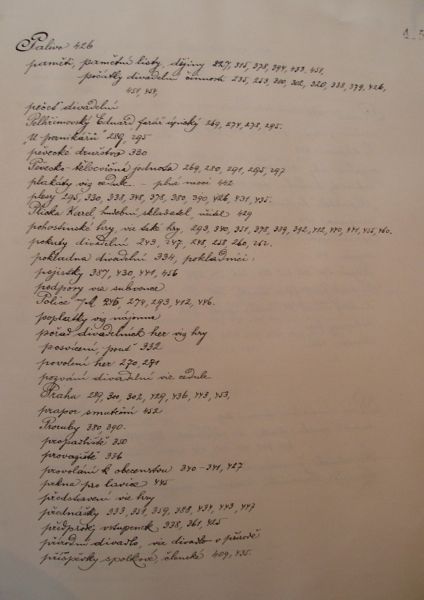 Palivo 426
paměti, pamětní listy, dějiny 227, 315, 378, 394, 453, 458,
počátky divadelní činnosti 235, 253, 300, 302, 320, 338, 379, 426,
451, 454,
péče divadelní
Pelhřimovský Eduard farář 269, 274, 278, 295.
"U perníkářů" 289, 295
pěvecké družstvo 330
Pěvecko-tělocvičná jednota 269, 280, 291, 295, 297
plakáty viz cedule. - plné moci 442
plesy 295, 330, 338, 348, 378, 380, 390, 426, 431, 435.
Plicka Karel, hudební skladatel, učitel 429
pohostinské hry, viz též hry, 293, 340, 351, 378, 389, 392, 412, 440, 441, 455, 460.
pokuty divadelní 243, 247, 248, 258, 260, 262.
pokladna divadelní 334, pokladníci:
pojistky 387, 430, 441, 456
podpory viz subvence
Police n/M. 246, 274, 293, 412, 446.
poplatky viz nájemné
pořad divadelních her viz hry
posvícení, pouť 332
povolení her 270, 281
pozvání divadelní viz cedule
Praha 289, 300, 302, 429, 436, 443, 453,
prapor smuteční 452
Proruby 380, 390.
propadliště 350
provaziště 336
provolání k obecenstvu 340-341, 427
prkna pro lavice 445
představení viz hry
přednášky 333, 351, 359, 388, 434, 443, 447
předprodej vstupenek 338, 361, 425
přírodní divadlo, viz divadlo v přírodě
příspěvky spolkové členské 409, 435.